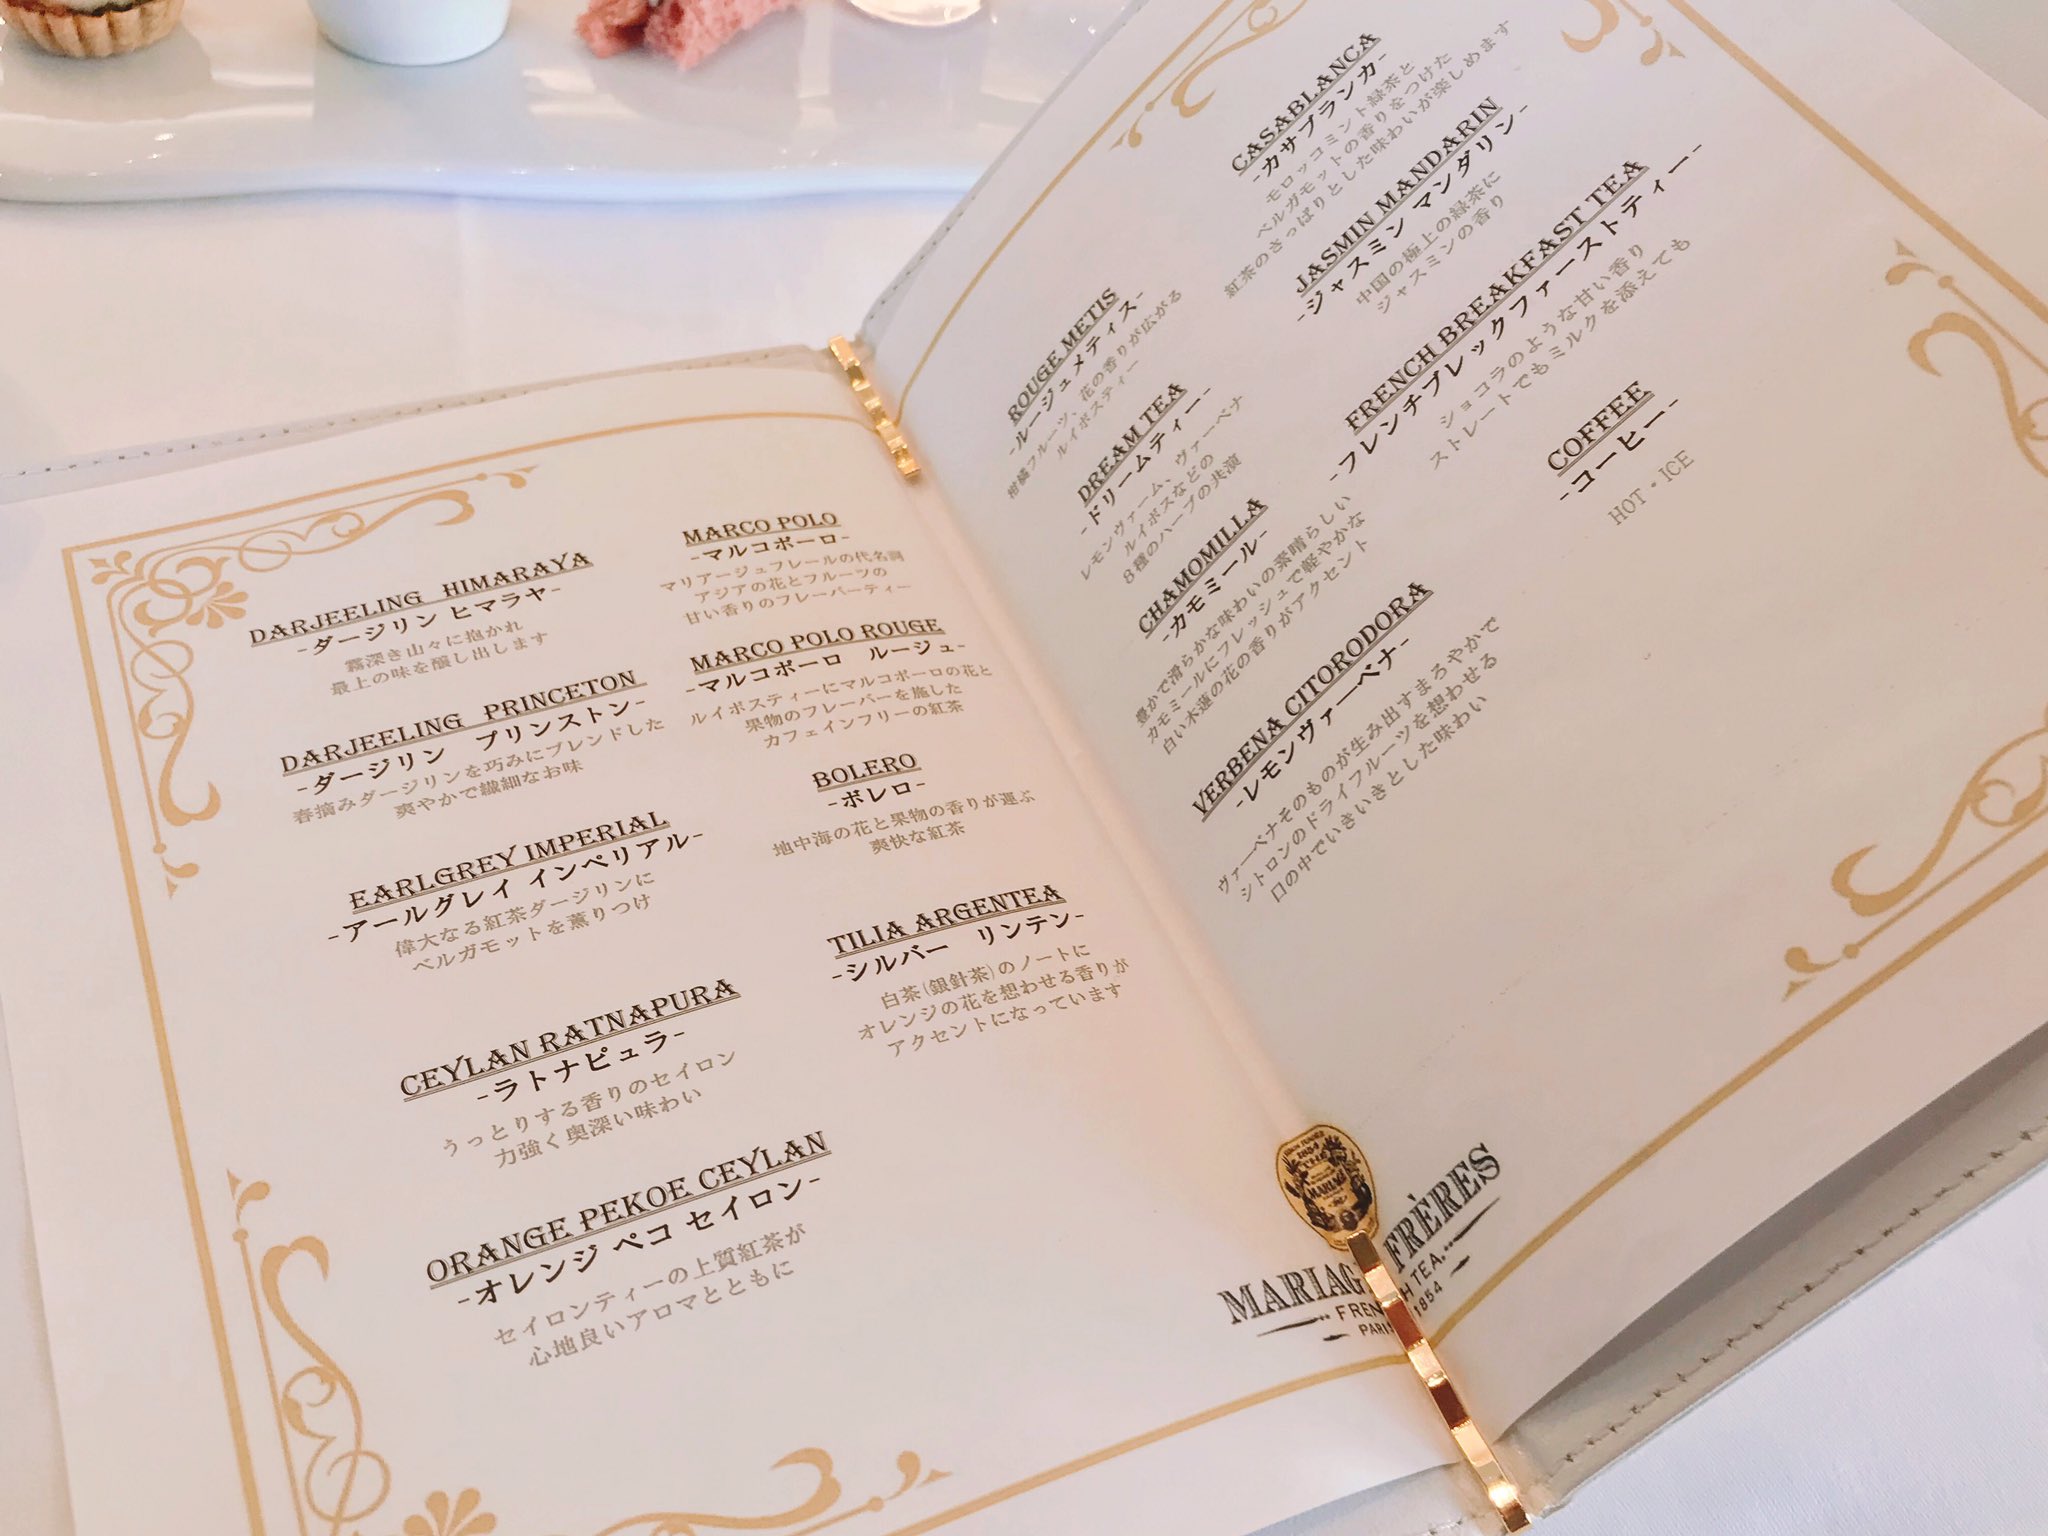 DARJEELING HIMARAYA
-ダージリン ヒマラヤ-
霧深き山々に抱かれ
最上の味を醸し出します
DARJEELING PRINCETON
-ダージリン プリンストン-
春摘みダージリンを巧みにブレンドした
爽やかで繊細なお味
EARLGREY IMPERIAL
-アールグレイ インペリアル-
偉大なる紅茶ダージリンに
ベルガモットを薫りつけ
CEYLAN RATNAPURA
-ラトナピュラ-
うっとりする香りのセイロン
力強く奥深い味わい
ORANGE PEKOE CEYLAN
-オレンジ ペコ セイロン-
セイロンティーの上質紅茶が
心地良いアロマとともに
MARCO POLO
-マルコポーロ-
マリアージュフレールの代名詞
アジアの花とフルーツの
甘い香りのフレーバーティー
MARCO POLO ROUGE
-マルコポーロ ルージュ-
ルイボスティーにマルコポーロの花と
果物のフレーバーを施した
カフェインフリーの紅茶
BOLERO
-ボレロ-
地中海の花と果物の香りが運ぶ
爽快な紅茶
TILIA ARGENTEA
-シルバー リンテン-
白茶(銀針茶)のノートに
オレンジの花を想わせる香りが
アクセントになっています
ROUGE METIS
-ルージュメティス-
柑橘フルーツ、花の香りが広がる
ルイボスティー
DREAM TEA
-ドリームティー-
レモンヴァーム、ヴァーベナ
ルイボスなどの
8種のハーブの共演
CHAMOMILLA
-カモミール-
豊かで滑らかな味わいの素晴らしい
カモミールにフレッシュで軽やかな
白い木蓮の花の香りがアクセント
VERBENA CITORODORA
-レモンヴァーベナ-
ヴァーベナそのものが生み出すまろやかで
シトロンのドライフルーツを想わせる
口の中でいきいきとした味わい
CASABLANCA
-カサブランカ-
モロッコミント緑茶と
ベルガモットの香りをつけた
紅茶のさっぱりとした味わいが楽しめます
JASMIN MANDARIN
-ジャスミン マンダリン-
中国の極上の緑茶に
ジャスミンの香り
FRENCH BREAKFAST TEA
-フレンチブレックファーストティー-
ショコラのような甘い香り
ストレートでもミルクを添えても
COFFEE
-コーヒー-
HOT・ICE
FRÈRES
TEA
1854